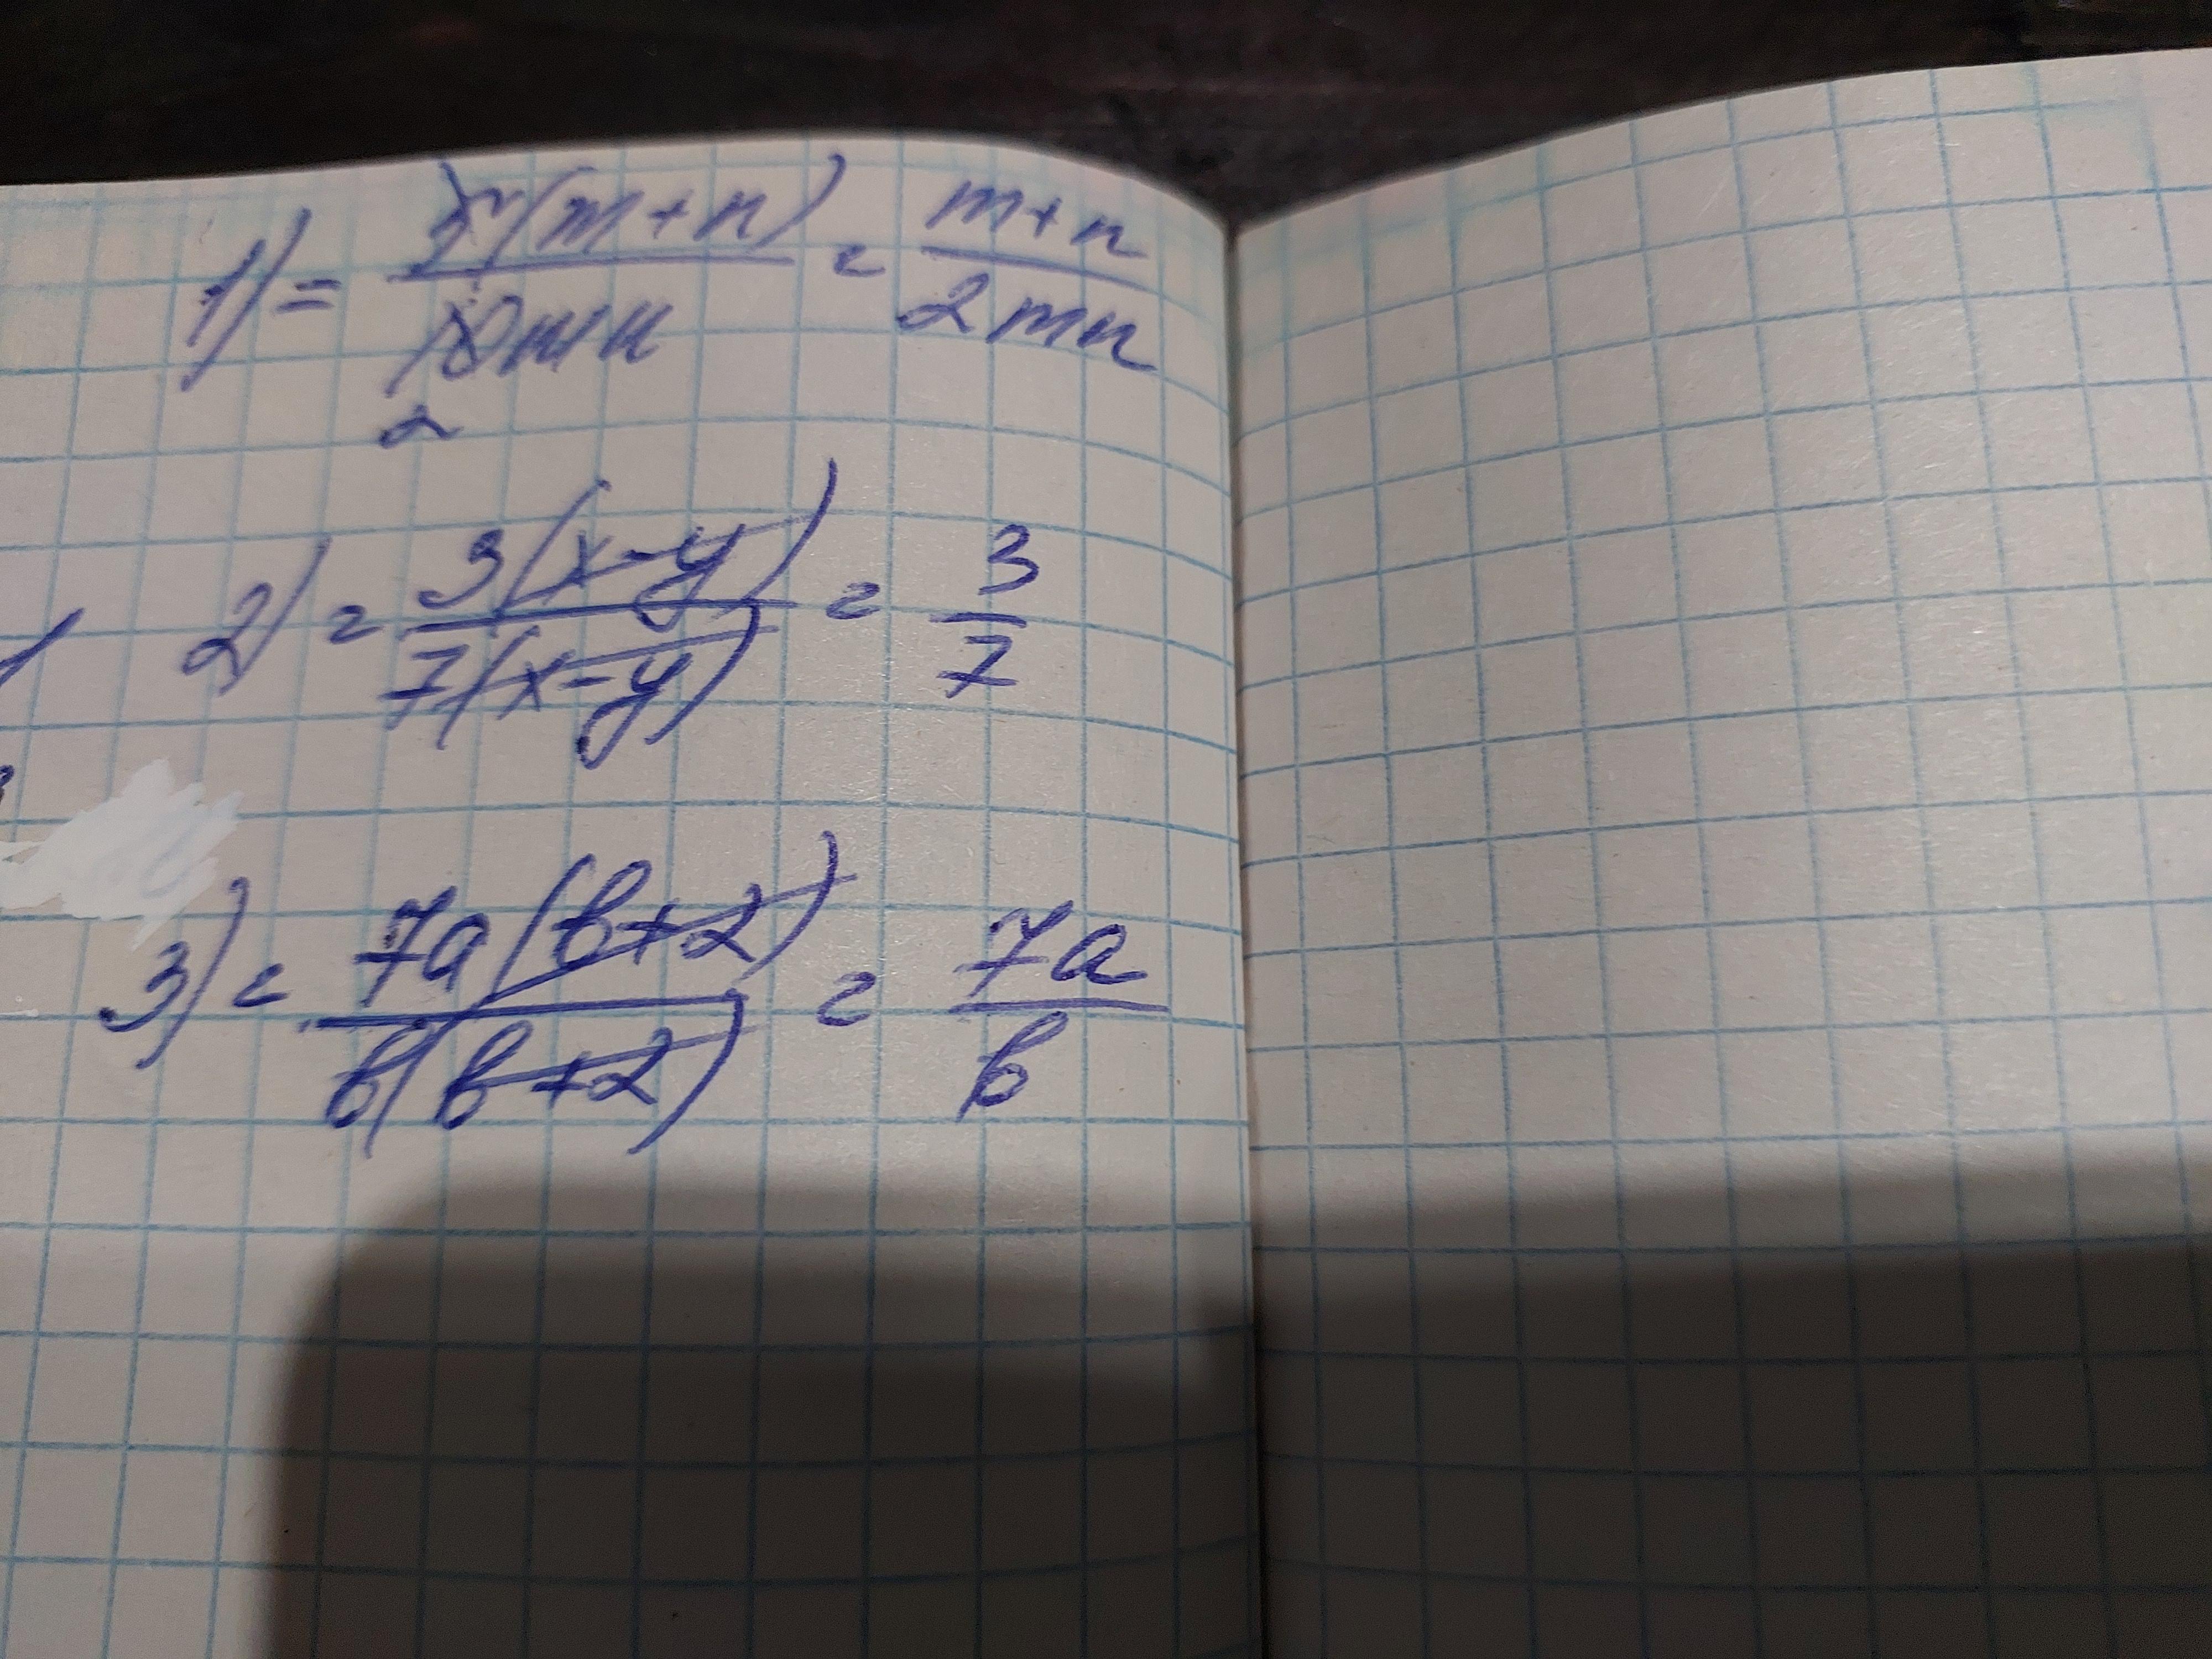 1) = 5(m+n)/10mn = m+n/2mn
2
2) = 3(x-y)/7(x-y) = 3/7
3) = 7a(b+2)/b(b+2) = 7a/b